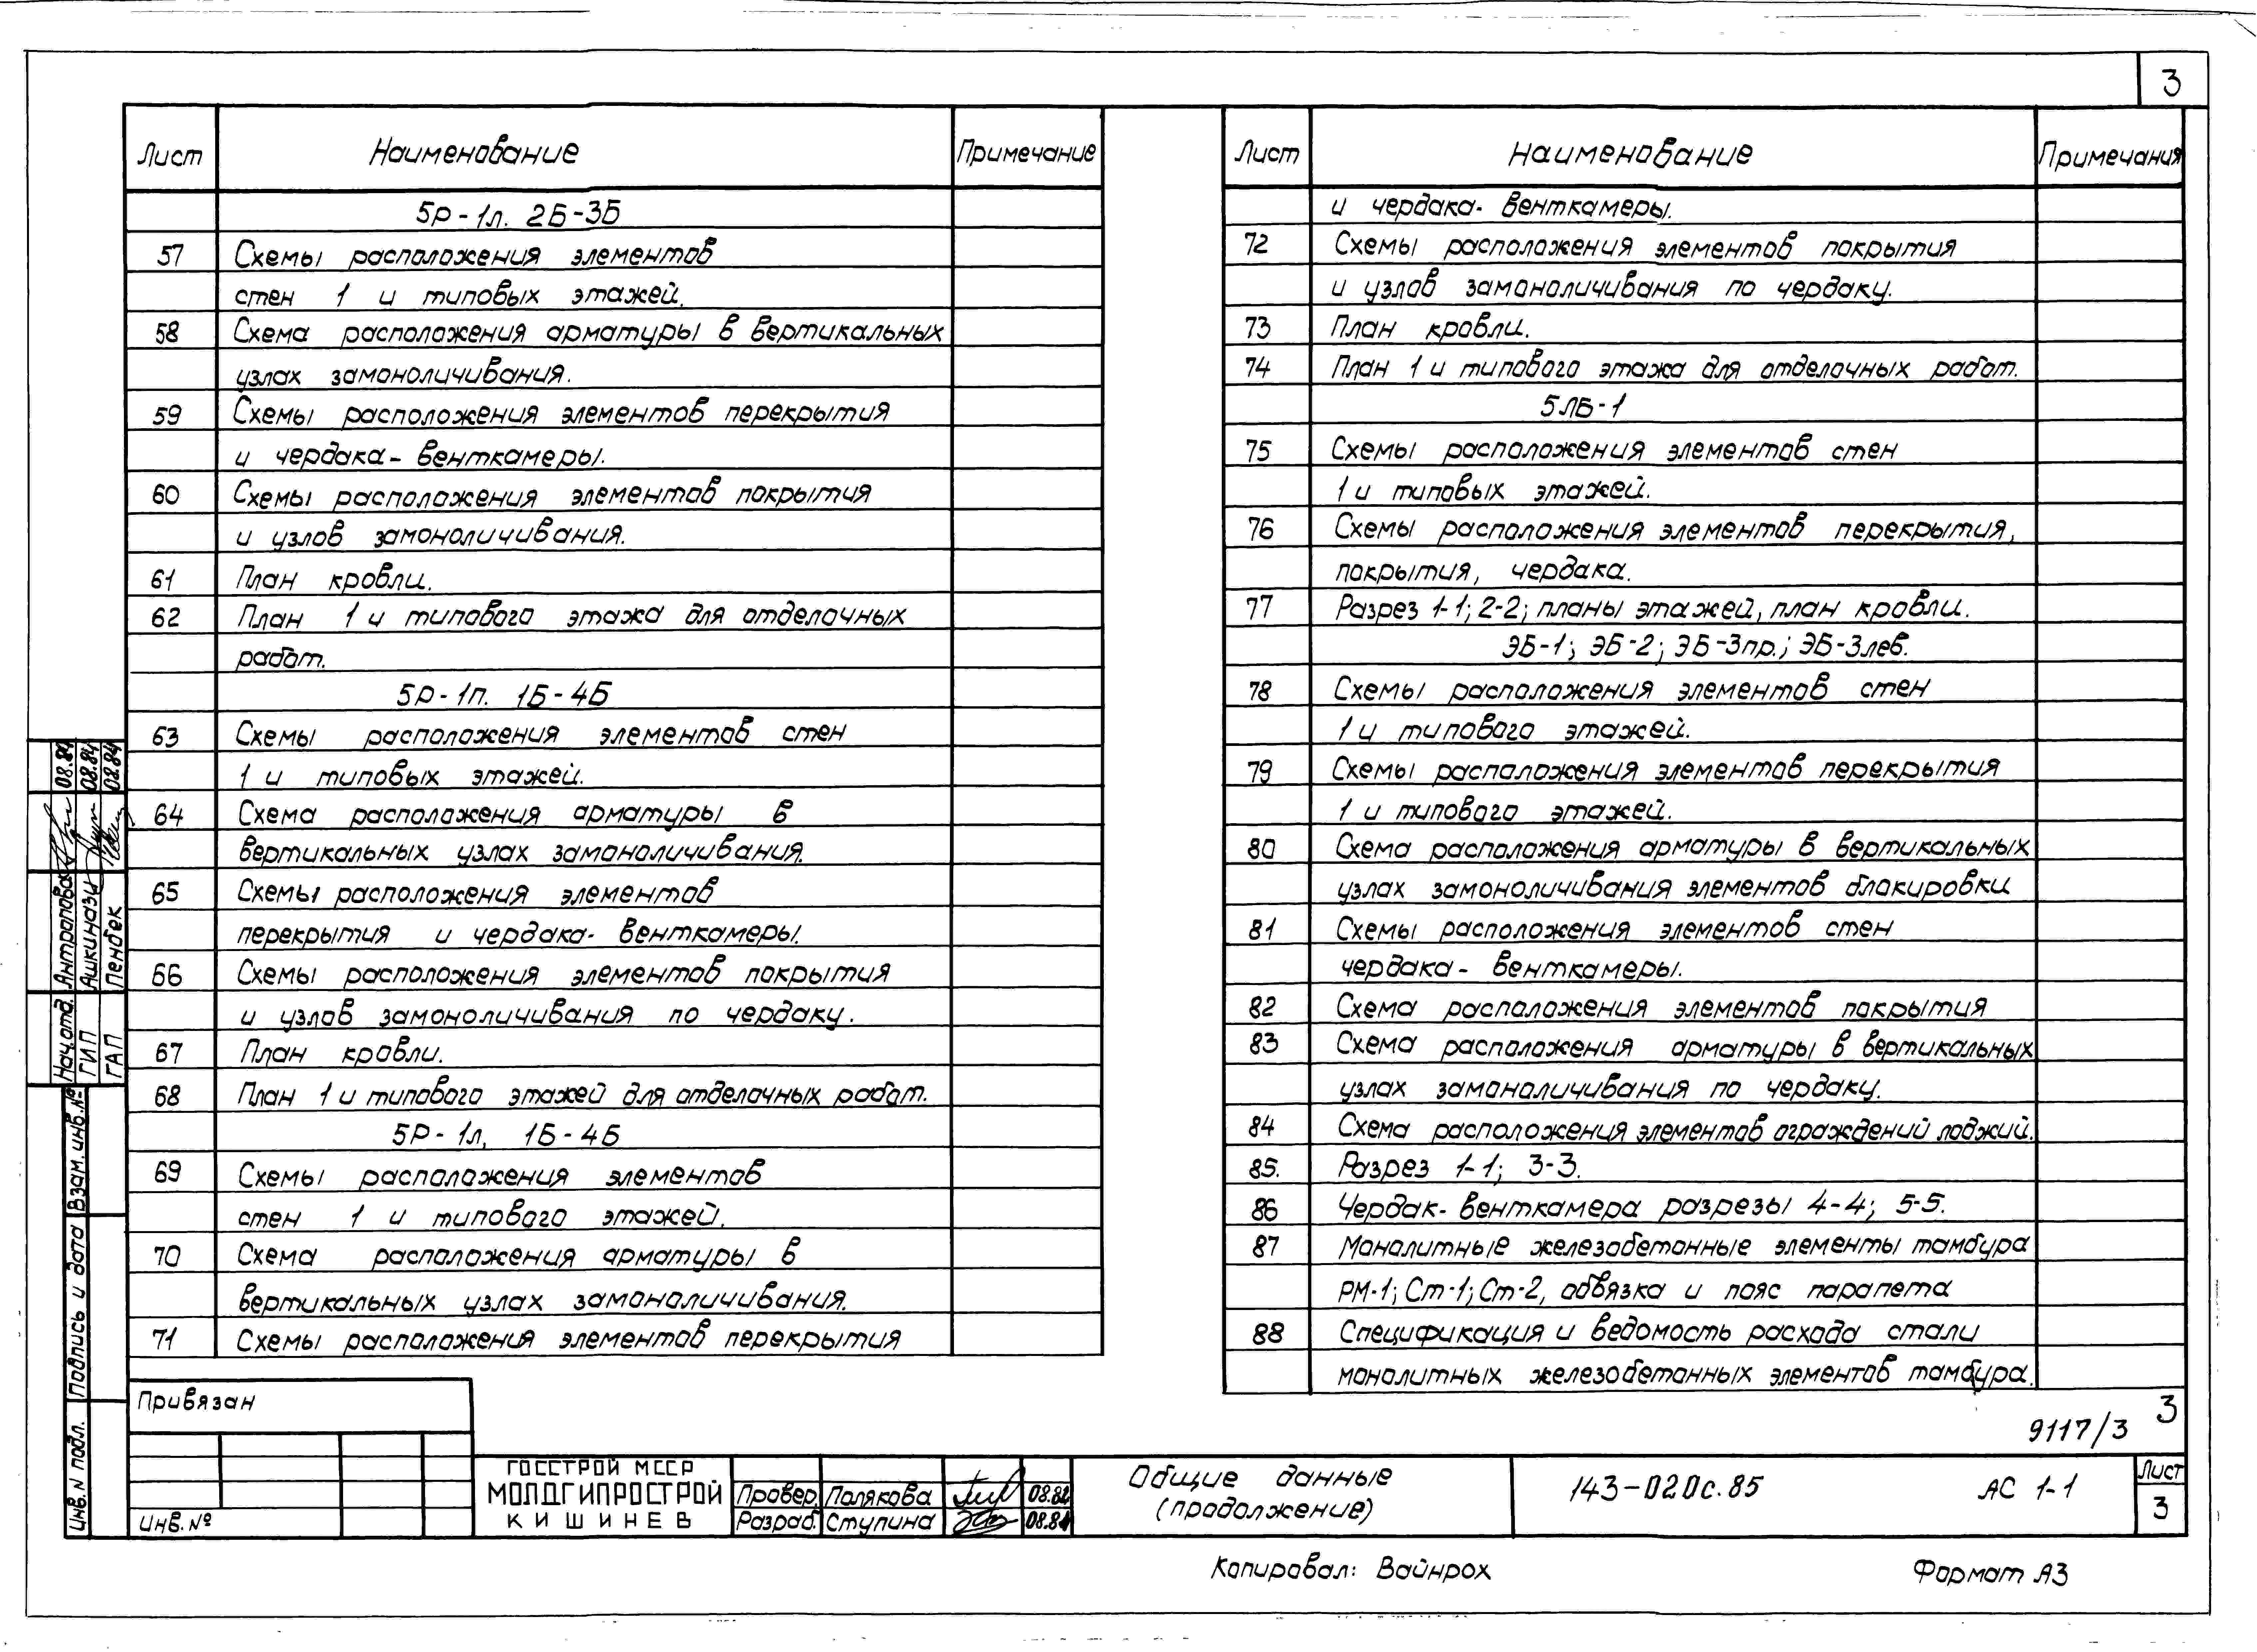 3
Лист Наименование Примечание
5Р-1л. 2Б-3Б
57 Схемы расположения элементов
стен 1 и типовых этажей.
58 Схема расположения арматуры в вертикальных
узлах замоноличивания.
59 Схемы расположения элементов перекрытия
и чердака-венткамеры.
60 Схемы расположения элементов покрытия
и узлов замоноличивания.
61 План кровли.
62 План 1 и типового этажа для отделочных
работ.
5Р-1п. 1Б-4Б
63 Схемы расположения элементов стен
1 и типовых этажей.
64 Схема расположения арматуры в
вертикальных узлах замоноличивания.
65 Схемы расположения элементов
перекрытия и чердака-венткамеры.
66 Схемы расположения элементов покрытия
и узлов замоноличивания по чердаку.
67 План кровли.
68 План 1 и типового этажей для отделочных работ.
5Р-1л, 1Б-4Б
69 Схемы расположения элементов
стен 1 и типового этажей.
70 Схема расположения арматуры в
вертикальных узлах замоноличивания.
71 Схемы расположения элементов перекрытия
Лист Наименование Примечания
и чердака-венткамеры.
72 Схемы расположения элементов покрытия
и узлов замоноличивания по чердаку.
73 План кровли.
74 План 1 и типового этажа для отделочных работ.
5ЛБ-1
75 Схемы расположения элементов стен
1 и типовых этажей.
76 Схемы расположения элементов перекрытия,
покрытия, чердака.
77 Разрез 1-1; 2-2; планы этажей, план кровли.
ЭБ-1; ЭБ-2; ЭБ-3пр.; ЭБ-3лев.
78 Схемы расположения элементов стен
1 и типового этажей.
79 Схемы расположения элементов перекрытия
1 и типового этажей.
80 Схема расположения арматуры в вертикальных
узлах замоноличивания элементов блокировки
81 Схемы расположения элементов стен
чердака-венткамеры.
82 Схема расположения элементов покрытия
83 Схема расположения арматуры в вертикальных
узлах замоноличивания по чердаку.
84 Схема расположения элементов ограждений лоджий.
85. Разрез 1-1; 3-3.
86 Чердак-венткамера разрезы 4-4; 5-5.
87 Монолитные железобетонные элементы тамбура
РМ-1; Ст-1; Ст-2, обвязка и пояс парапета
88 Спецификация и ведомость расхода стали
монолитных железобетонных элементов тамбура.
Нач.отд. Антропова 08.84
ГИП Ашкинази 08.84
ГАП Пенбек 08.84
Взам. инв.№
Подпись и дата
Инв. N подл.
Привязан
Инв.№
ГОССТРОЙ МССР
МОЛДГИПРОСТРОЙ
КИШИНЕВ
Провер. Полякова 08.84
Разраб. Ступина 08.84
Общие данные
(продолжение)
9117/3 3
143-020с.85 АС 1-1
Лист
3
Копировал: Вайнрох Формат А3